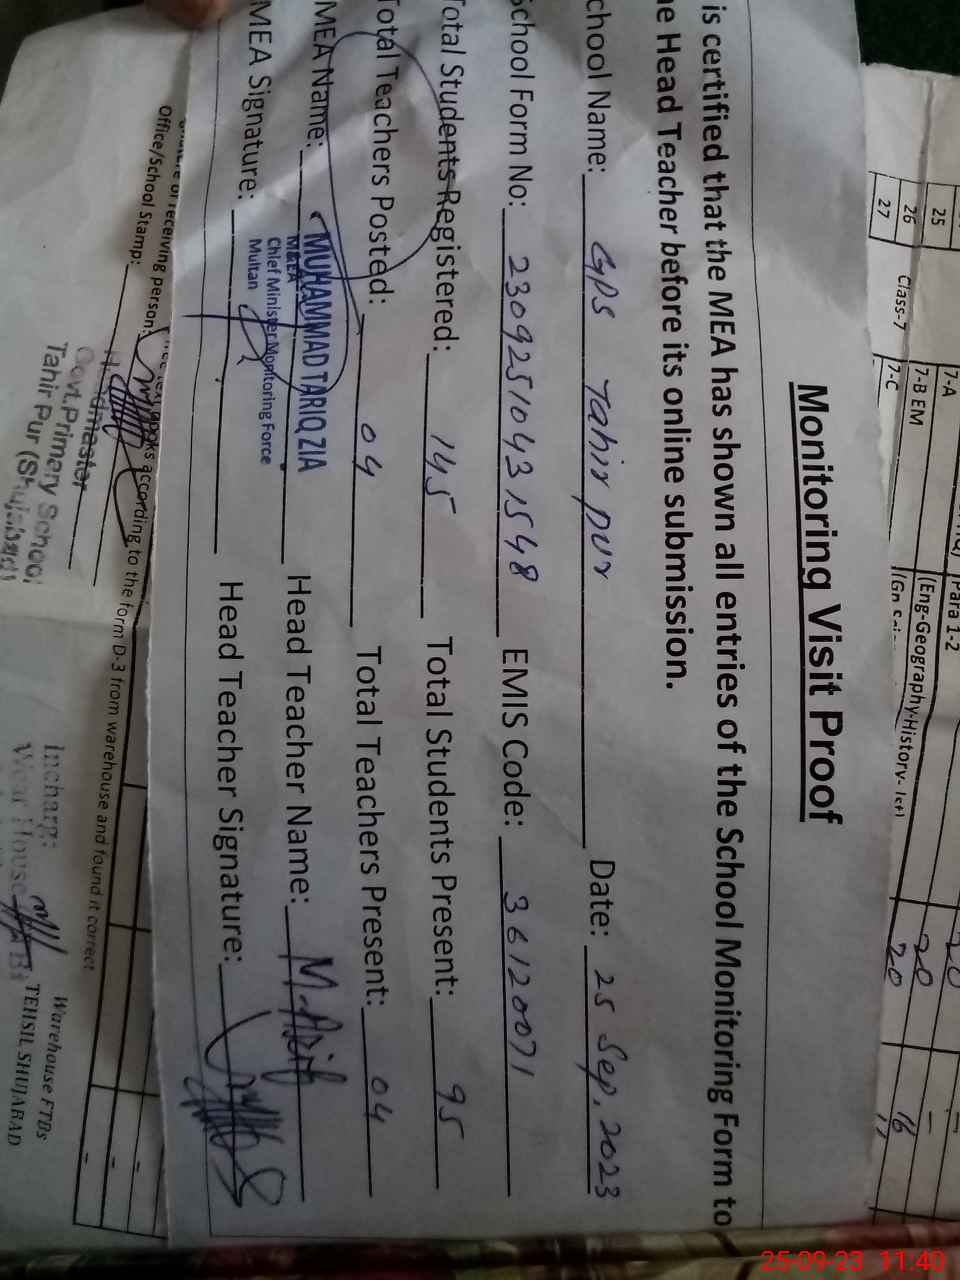 Monitoring Visit Proof
is certified that the MEA has shown all entries of the School Monitoring Form to
Head Teacher before its online submission.
chool Name: GPS Tahir pur Date: 25 Sep, 2023
School Form No: 23092510431548 EMIS Code: 36120071
Total Students Registered: 145 Total Students Present: 95
Total Teachers Posted: 04 Total Teachers Present: 04
MEA Name: MUHAMMAD TARIQ ZIA Head Teacher Name: M. Asif
M&EA
Chief Minister Monitoring Force
Multan
MEA Signature: Head Teacher Signature:
7-A Para 1-2 20
25 7-B EM (Eng-Geography-History- 20 -
26 Class-7 7-C 20 16
27 17
of receiving person: books according to the form D-3 from warehouse and found it correct
Office/School Stamp:
Headmaster
Govt. Primary School
Tahir Pur (Shujabad)
Incharg:
Warehouse FTBs
TEHSIL SHUJABAD
25-09-23 11:40